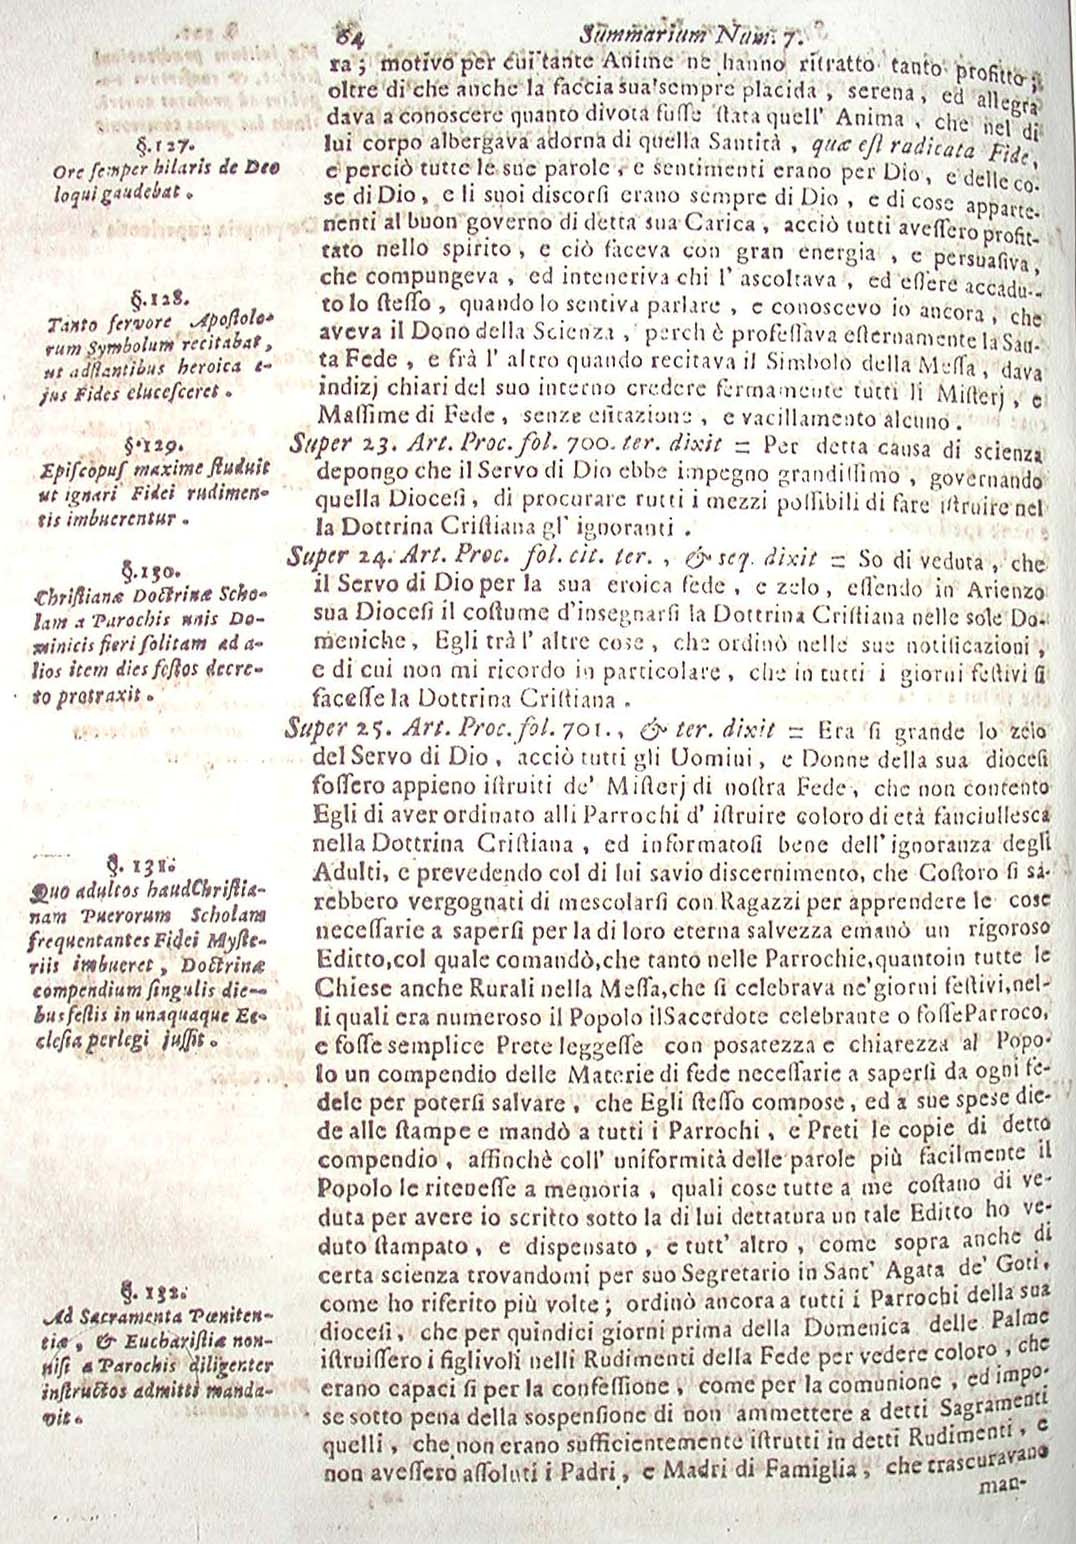 64 Summarium Num. 7.
ra; motivo per cui tante Anime ne hanno ritratto tanto profitto;
oltre di che anche la faccia sua sempre placida, serena, ed allegra
dava a conoscere quanto divota fusse stata quell' Anima, che nel di
lui corpo albergava adorna di quella Santità, quæ est radicata Fide,
e perciò tutte le sue parole, e sentimenti erano per Dio, e delle co-
se di Dio, e li suoi discorsi erano sempre di Dio, e di cose apparte-
nenti al buon governo di detta sua Carica, acciò tutti avessero profit-
tato nello spirito, e ciò faceva con gran energia, e persuasiva,
che compungeva, ed inteneriva chi l' ascoltava, ed essere accadu-
to lo stesso, quando lo sentiva parlare, e conoscevo io ancora, che
aveva il Dono della Scienza, perch è professava esternamente la San-
ta Fede, e frà l' altro quando recitava il Simbolo della Messa, dava
indizj chiari del suo interno credere fermamente tutti li Misterj, e
Massime di Fede, senze esitazione, e vacillamento alcuno.
Super 23. Art. Proc. fol. 700. ter. dixit = Per detta causa di scienza
depongo che il Servo di Dio ebbe impegno grandissimo, governando
quella Diocesi, di procurare tutti i mezzi possibili di fare istruire nel
la Dottrina Cristiana gl' ignoranti.
Super 24. Art. Proc. fol. cit. ter., & seq. dixit = So di veduta, che
il Servo di Dio per la sua eroica fede, e zelo, essendo in Arienzo
sua Diocesi il costume d'insegnarsi la Dottrina Cristiana nelle sole Do-
meniche, Egli trà l' altre cose, che ordinò nelle sue notificazioni,
e di cui non mi ricordo in particolare, che in tutti i giorni festivi si
facesse la Dottrina Cristiana.
Super 25. Art. Proc. fol. 701., & ter. dixit = Era si grande lo zelo
del Servo di Dio, acciò tutti gli Uomini, e Donne della sua diocesi
fossero appieno istruiti de' Misterj di nostra Fede, che non contento
Egli di aver ordinato alli Parrochi d' istruire coloro di età fanciullesca
nella Dottrina Cristiana, ed informatosi bene dell' ignoranza degli
Adulti, e prevedendo col di lui savio discernimento, che Costoro si sa-
rebbero vergognati di mescolarsi con Ragazzi per apprendere le cose
necessarie a sapersi per la di loro eterna salvezza emanò un rigoroso
Editto, col quale comandò, che tanto nelle Parrochie, quantoin tutte le
Chiese anche Rurali nella Messa, che si celebrava ne' giorni festivi, nel-
li quali era numeroso il Popolo il Sacerdote celebrante o fosse Parroco,
e fosse semplice Prete leggesse con posatezza e chiarezza al Popo-
lo un compendio delle Materie di fede necessarie a sapersi da ogni fe-
dele per potersi salvare, che Egli stesso compose, ed a sue spese die-
de alle stampe e mandò a tutti i Parrochi, e Preti le copie di detto
compendio, affinchè coll' uniformità delle parole più facilmente il
Popolo le ritenesse a memoria, quali cose tutte a me costano di ve-
duta per avere io scritto sotto la di lui dettatura un tale Editto ho ve-
duto stampato, e dispensato, e tutt' altro, come sopra anche di
certa scienza trovandomi per suo Segretario in Sant' Agata de' Goti,
come ho riferito più volte; ordinò ancora a tutti i Parrochi della sua
diocesi, che per quindici giorni prima della Domenica delle Palme
istruissero i figlivoli nelli Rudimenti della Fede per vedere coloro, che
erano capaci si per la confessione, come per la comunione, ed impo-
se sotto pena della sospensione di non ammettere a detti Sagramenti
quelli, che non erano sufficientemente istrutti in detti Rudimenti, e
non avessero assoluti i Padri, e Madri di Famiglia, che trascuravano
man-
§. 127.
Ore semper hilaris de Deo
loqui gaudebat.
§. 128.
Tanto fervore Apostolo-
rum Symbolum recitabat,
ut adstantibus heroica e-
jus Fides elucesceret.
§. 129.
Episcopus maxime studuit
ut ignari Fidei rudimen-
tis imbuerentur.
§. 130.
Christianæ Doctrinæ Scho-
lam a Parochis unis Do-
minicis fieri solitam ad a-
lios item dies festos decre-
to protraxit.
§. 131.
Quo adultos haud Christia-
nam Puerorum Scholam
frequentantes Fidei Myste-
riis imbueret, Doctrinæ
compendium singulis die-
bus festis in unaquaque Ec-
clesia perlegi jussit.
§. 132.
Ad Sacramenta Pœniten-
tiæ, & Eucharistiæ non-
nisi a Parochis diligenter
instructos admitti manda-
vit.